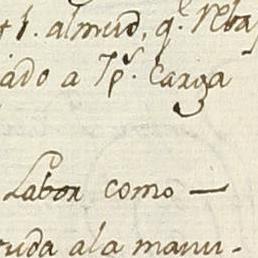 1. almud, q.e reba
ado a 7 p.s Carga
Labor como —
uda a la manu-